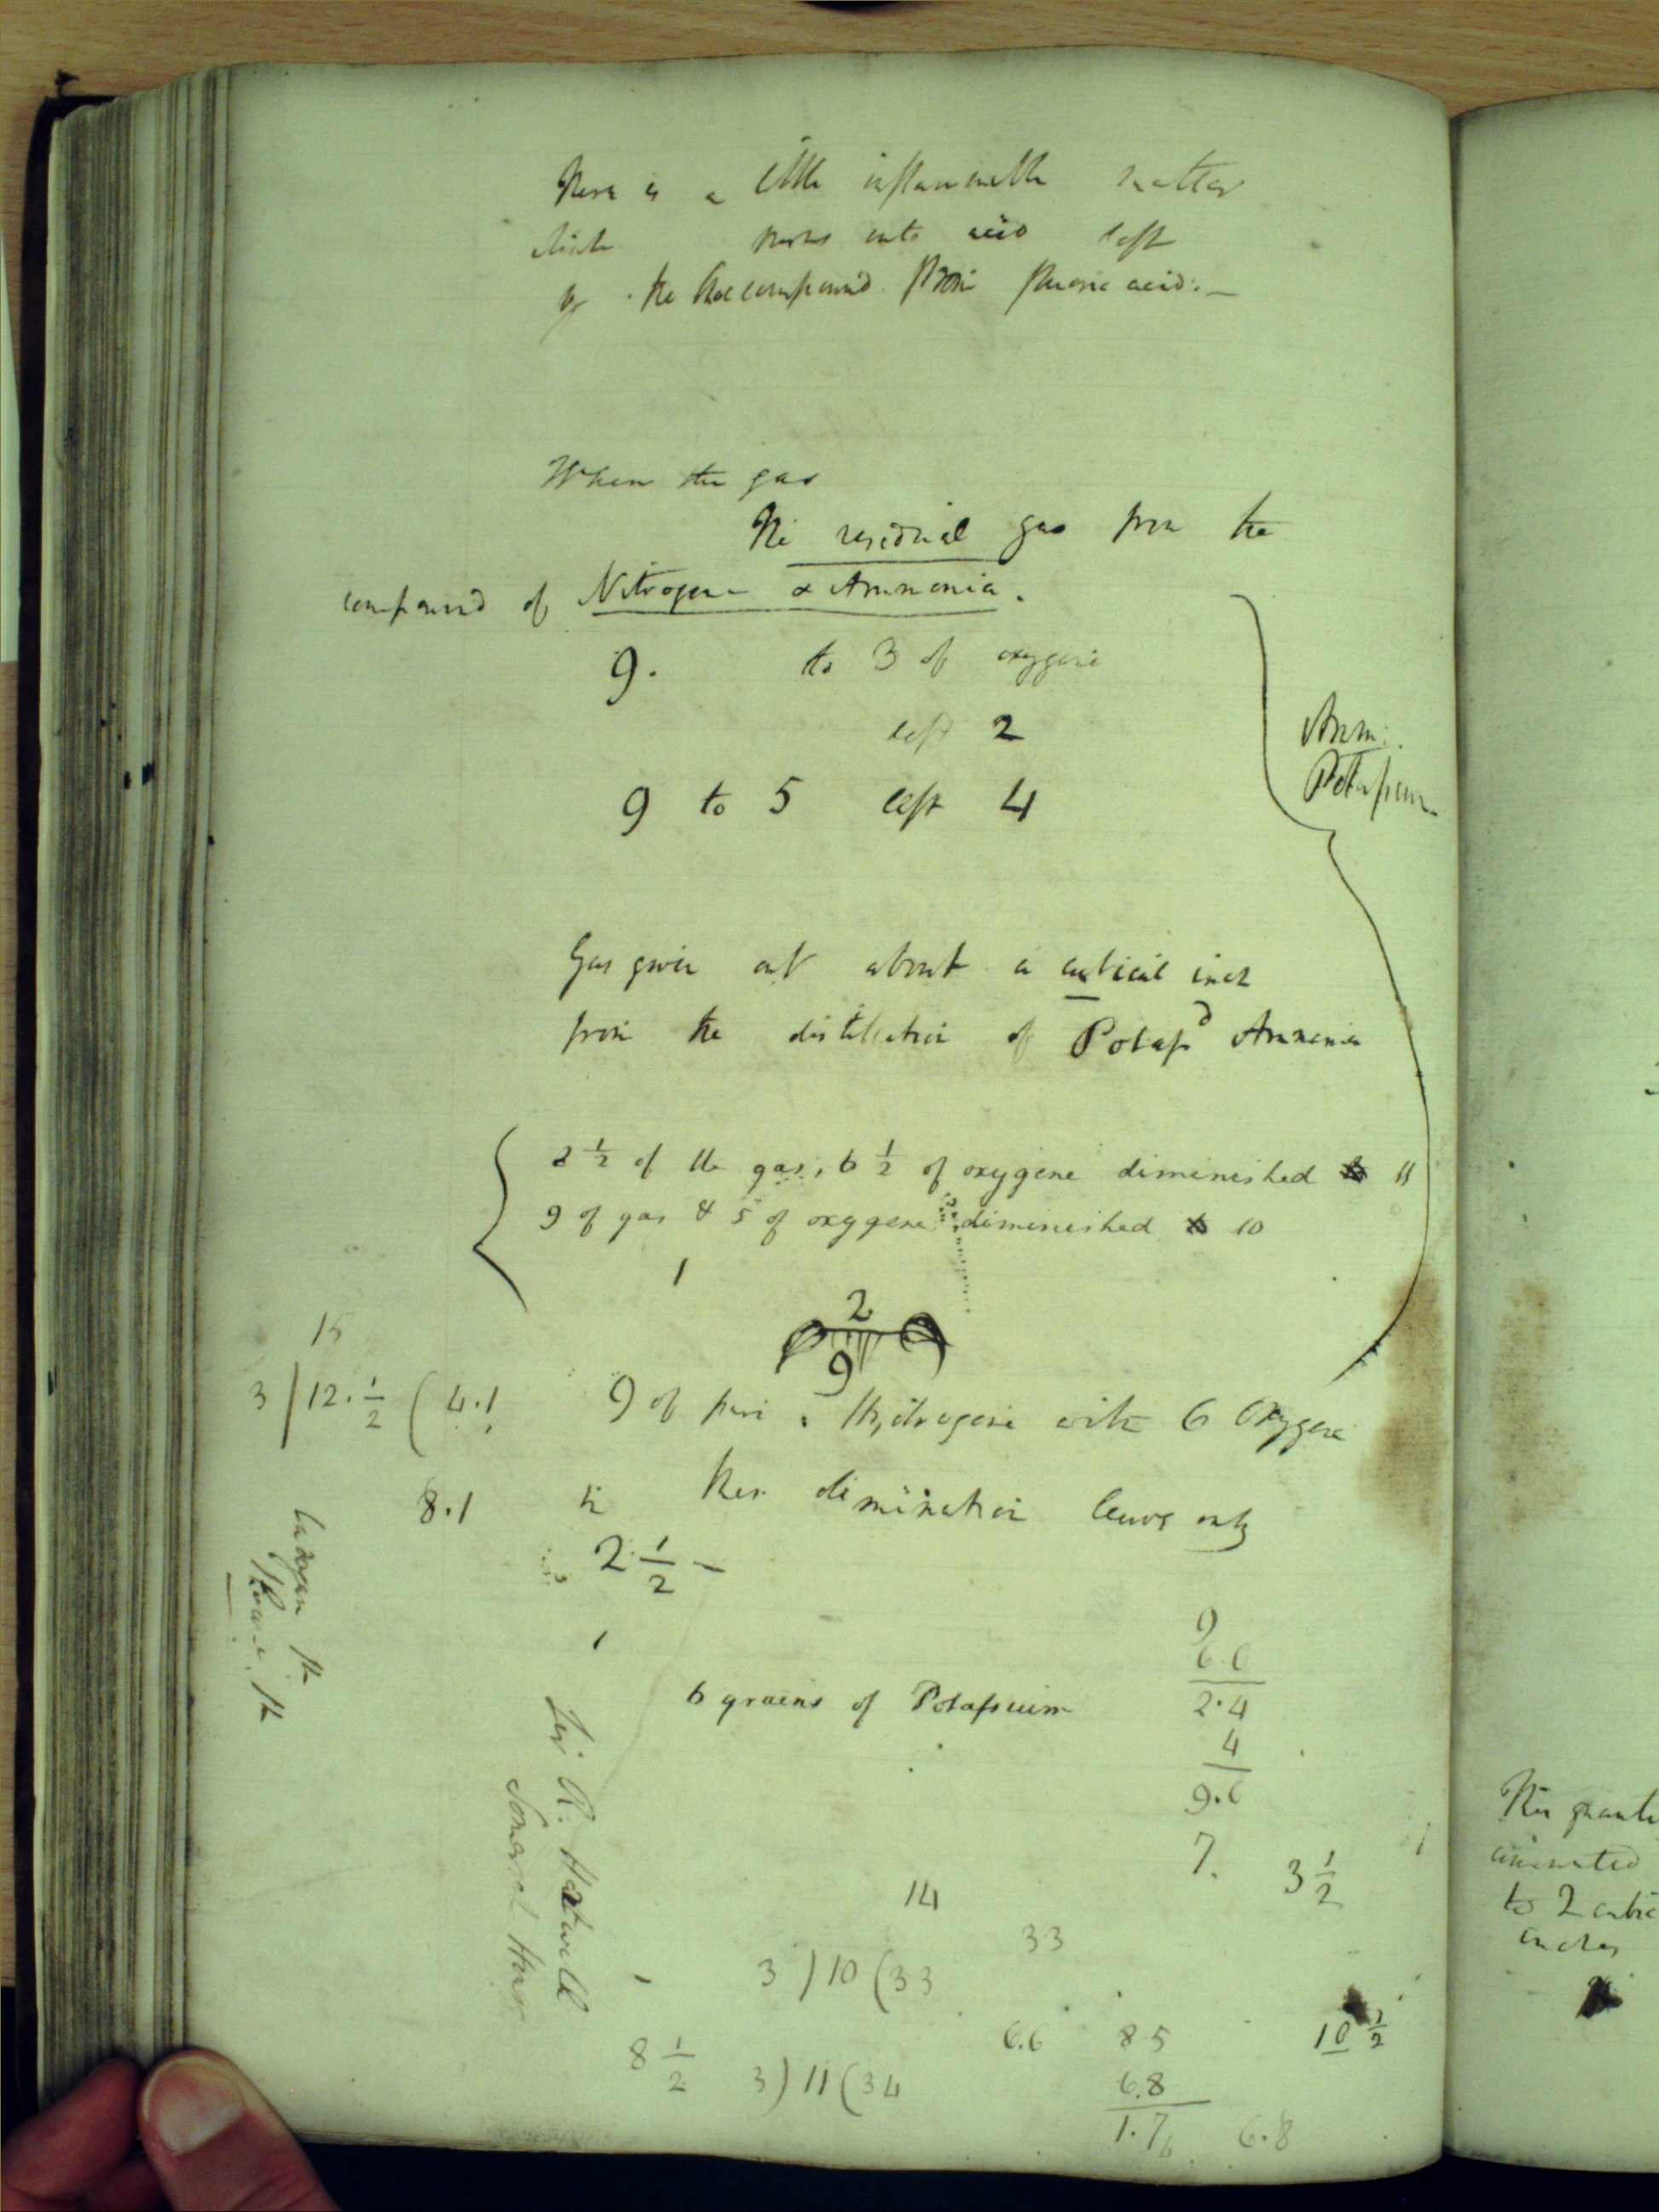 There is a little inflammable matter
which burns into acid left
by the decompound from fluoric acid:—
When the gas
The residual gas from the
compound of Nitrogene & Ammonia.
9. to 3 of oxygene
left 2
9 to 5 left 4
Amm:
Potassium
Gas given out about a cubical inch
from the distillation of Potass^d Ammonia
8 1/2 of the gas, 6 1/2 of oxygene diminished to 11
9 of gas & 5 of oxygene diminished to 10
1
2
9
15
3 / 12. 1/2 ( 4.1
8.1
9 of pure Hydrogene with 6 Oxygene
in diminution leaves only
2 1/2 —
6 grains of Potassium
9
6.6
2.4
4
9.6
7. 3 1/2
14
33
3 ) 10 (33
6.6 85 10 1/2
8 1/2 3 ) 11 (34
6.8
1.7 6.8
Sir R. Hotwell
to 2 cubic
inches